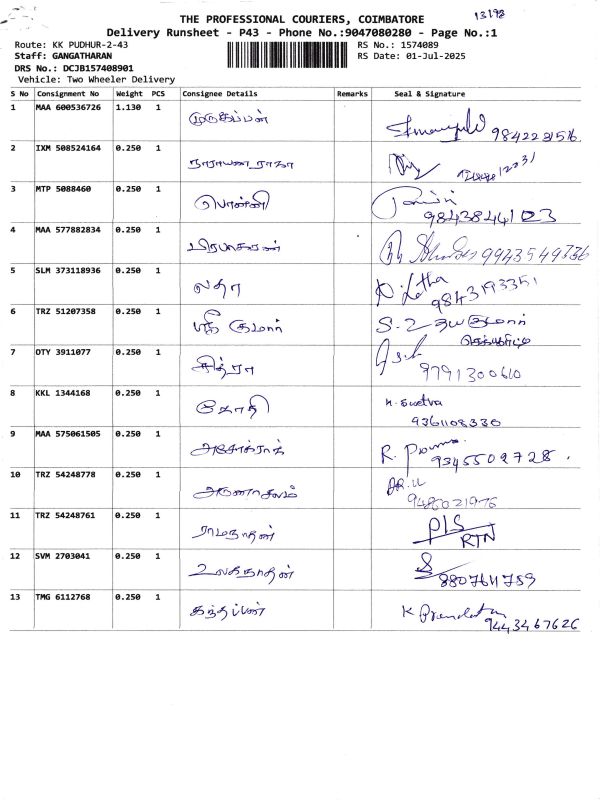 13/98
THE PROFESSIONAL COURIERS, COIMBATORE
Delivery Runsheet - P43 - Phone No.:9047080280 - Page No.:1
Route: KK PUDHUR-2-43 RS No.: 1574089
Staff: GANGATHARAN RS Date: 01-Jul-2025
DRS No.: DCJB157408901
Vehicle: Two Wheeler Delivery
S No Consignment No Weight PCS Consignee Details Remarks Seal & Signature
1 MAA 600536726 1.130 1 முருகப்பன்
9842231516
2 IXM 508524164 0.250 1 நாராயண ராஜா
3 MTP 5088460 0.250 1 பொன்னி
9843844123
4 MAA 577882834 0.250 1 பிரபாகரன் 9943549336
5 SLM 373118936 0.250 1 லதா Latha
9843193351
6 TRZ 51207358 0.250 1 ஸ்ரீ குமார் S. உதயகுமார்
7 DTY 3911077 0.250 1 சித்ரா
9791300610
8 KKL 1344168 0.250 1 ஜோதி
9361108330
9 MAA 575061505 0.250 1 அசோக்ராஜ் R.
9345509728.
10 TRZ 54248778 0.250 1 அருணாசலம்
9486021976
11 TRZ 54248761 0.250 1 ராமநாதன் PIS
RTN
12 SVM 2703041 0.250 1 உலகநாதன்
8807611789
13 TMG 6112768 0.250 1 கந்தப்பன் K
9443467626